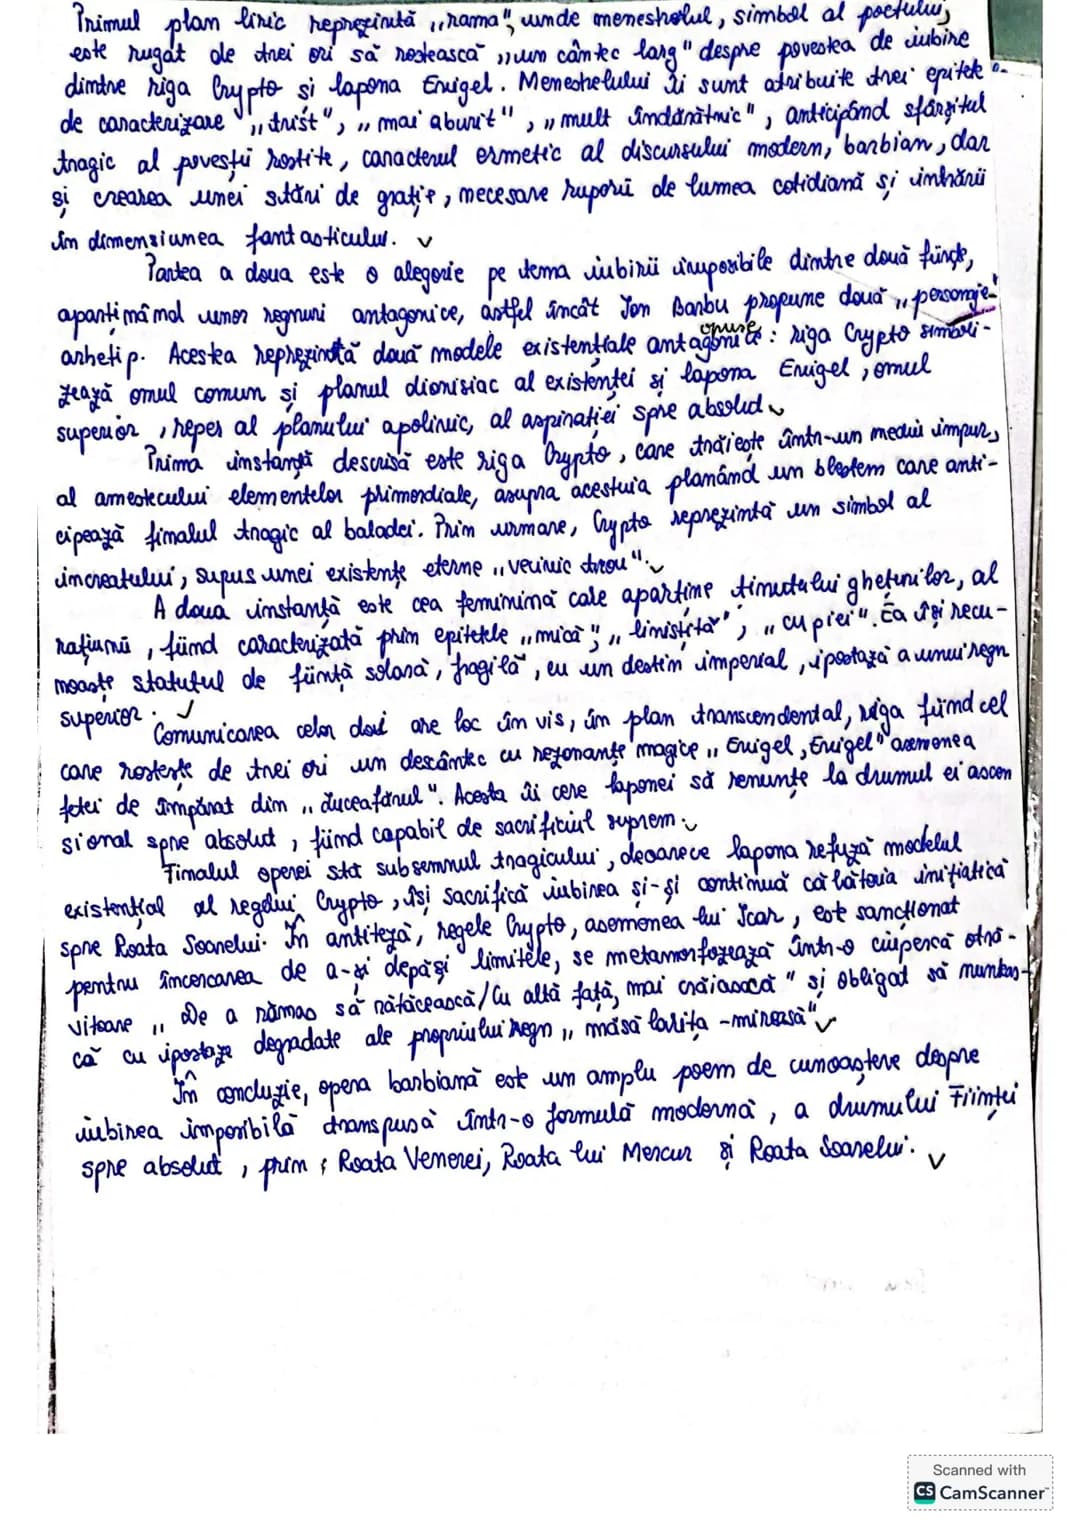 Primul plan liric reprezintă „rama", unde menestrelul, simbol al poetului,
este rugat de trei ori să rostească „un cântec larg" despre povestea de iubire
dintre riga Crypto și lapona Enigel. Menestrelului îi sunt atribuite trei epitete
de caracterizare „trist", „mai aburit", „mult îndărătnic", anticipând sfârșitul
tragic al poveștii rostite, caracterul ermetic al discursului modern, barbian, dar
și crearea unei stări de grație, necesare ruperii de lumea cotidiană și intrării
în dimensiunea fantasticului.
Partea a doua este o alegorie pe tema iubirii imposibile dintre două ființe,
aparținând unor regnuri antagonice, astfel încât Ion Barbu propune două „personaje"
arhetip. Acestea reprezintă două modele existențiale antagonice opuse: riga Crypto simboli-
zează omul comun și planul dionisiac al existenței și lapona Enigel, omul
superior, reper al planului apolinic, al aspirației spre absolut
Prima instanță descrisă este riga Crypto, care trăiește într-un mediu impur,
al amestecului elementelor primordiale, asupra acestuia planând un blestem care anti-
cipează finalul tragic al baladei. Prin urmare, Crypto reprezintă un simbol al
increatului, supus unei existențe eterne „vecinic tron".
A doua instanță este cea feminină cale aparține ținutului ghețurilor, al
rațiunii, fiind caracterizată prin epitetele „mică", „liniștită", „cu piei". Ea își recu-
noaște statutul de ființă solară, fragilă, cu un destin imperial, ipostază a unui regn
superior.
Comunicarea celor doi are loc în vis, în plan transcendental, riga fiind cel
care rostește de trei ori un descântec cu rezonanțe magice „Enigel, Enigel" asemenea
fetei de împărat din „Luceafărul". Acesta îi cere laponei să renunțe la drumul ei ascen
sional spre absolut, fiind capabil de sacrificiul suprem.
Finalul operei stă sub semnul tragicului, deoarece lapona refuză modelul
existențial al regelui Crypto, își sacrifică iubirea și-și continuă călătoria inițiatică
spre Roata Soarelui. În antiteză, regele Crypto, asemenea lui Icar, este sancționat
pentru încercarea de a-și depăși limitele, se metamorfozează într-o ciupercă otră-
vitoare „De a rămas să rătăcească/Cu altă față, mai crăiască" și obligat să nunteas-
că cu ipostaze degradate ale propriului regn „măsălarița-mireasă"
În concluzie, opera barbiană este un amplu poem de cunoaștere despre
iubirea imposibilă transpusă într-o formulă modernă, a drumului Ființei
spre absolut, prin: Roata Venerei, Roata lui Mercur și Roata Soarelui.
Scanned with
CS CamScanner